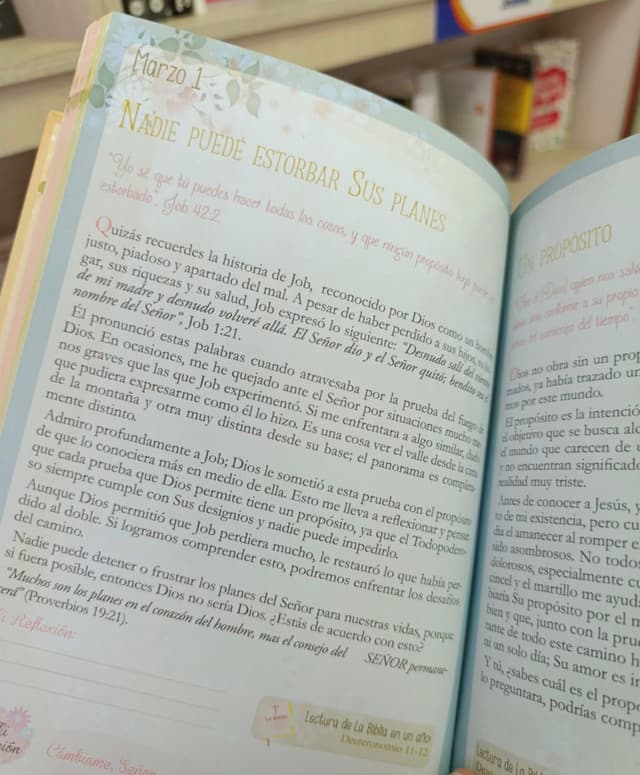 Marzo 1
NADIE PUEDE ESTORBAR SUS PLANES
"Yo sé que tú puedes hacer todas las cosas, y que ningún propósito tuyo puede ser
estorbado". Job 42:2
Quizás recuerdes la historia de Job, reconocido por Dios como un hombre
justo, piadoso y apartado del mal. A pesar de haber perdido a sus hijos, su ho-
gar, sus riquezas y su salud, Job expresó lo siguiente: "Desnudo salí del vientre
de mi madre y desnudo volveré allá. El Señor dio y el Señor quitó; bendito sea el
nombre del Señor", Job 1:21.
Él pronunció estas palabras cuando atravesaba por la prueba del fuego de
Dios. En ocasiones, me he quejado ante el Señor por situaciones mucho me-
nos graves que las que Job experimentó. Si me enfrentara a algo similar, dudo
que pudiera expresarme como él lo hizo. Es una cosa ver el valle desde la cima
de la montaña y otra muy distinta desde su base; el panorama es completa-
mente distinto.
Admiro profundamente a Job; Dios le sometió a esta prueba con el propósito
de que lo conociera más en medio de ella. Esto me lleva a reflexionar y pensar
que cada prueba que Dios permite tiene un propósito, ya que el Todopodero-
so siempre cumple con Sus designios y nadie puede impedirlo.
Aunque Dios permitió que Job perdiera mucho, le restauró lo que había per-
dido al doble. Si logramos comprender esto, podremos enfrentar los desafíos
del camino.
Nadie puede detener o frustrar los planes del Señor para nuestras vidas, porque
si fuera posible, entonces Dios no sería Dios. ¿Estás de acuerdo con esto?
"Muchos son los planes en el corazón del hombre, mas el consejo del SEÑOR permane-
cerá" (Proverbios 19:21).
Mi Reflexión:
Cámbiame, Señor
Lectura de La Biblia en un año:
Deuteronomio 11-12
UN PROPÓSITO
"Fue él (Dios) quien nos salvó
conforme a su propio
del comienzo del tiempo
Dios no obra sin un prop
mados, ya había trazado un
mos por este mundo.
El propósito es la intenció
el objetivo que se busca alc
el mundo que carecen de u
y no encuentran significad
realidad muy triste.
Antes de conocer a Jesús, y
to de mi existencia, pero cu
día el amanecer al romper e
sido asombrosos. No todos
dolorosos, especialmente c
cincel y el martillo me ayud
biaría Su propósito por el m
bien y que, junto con la prue
tante de todo este camino h
ni un solo día; Su amor es in
Y tú, ¿sabes cuál es el propó
lo preguntara, podrías comp
Lectura de La Bibl